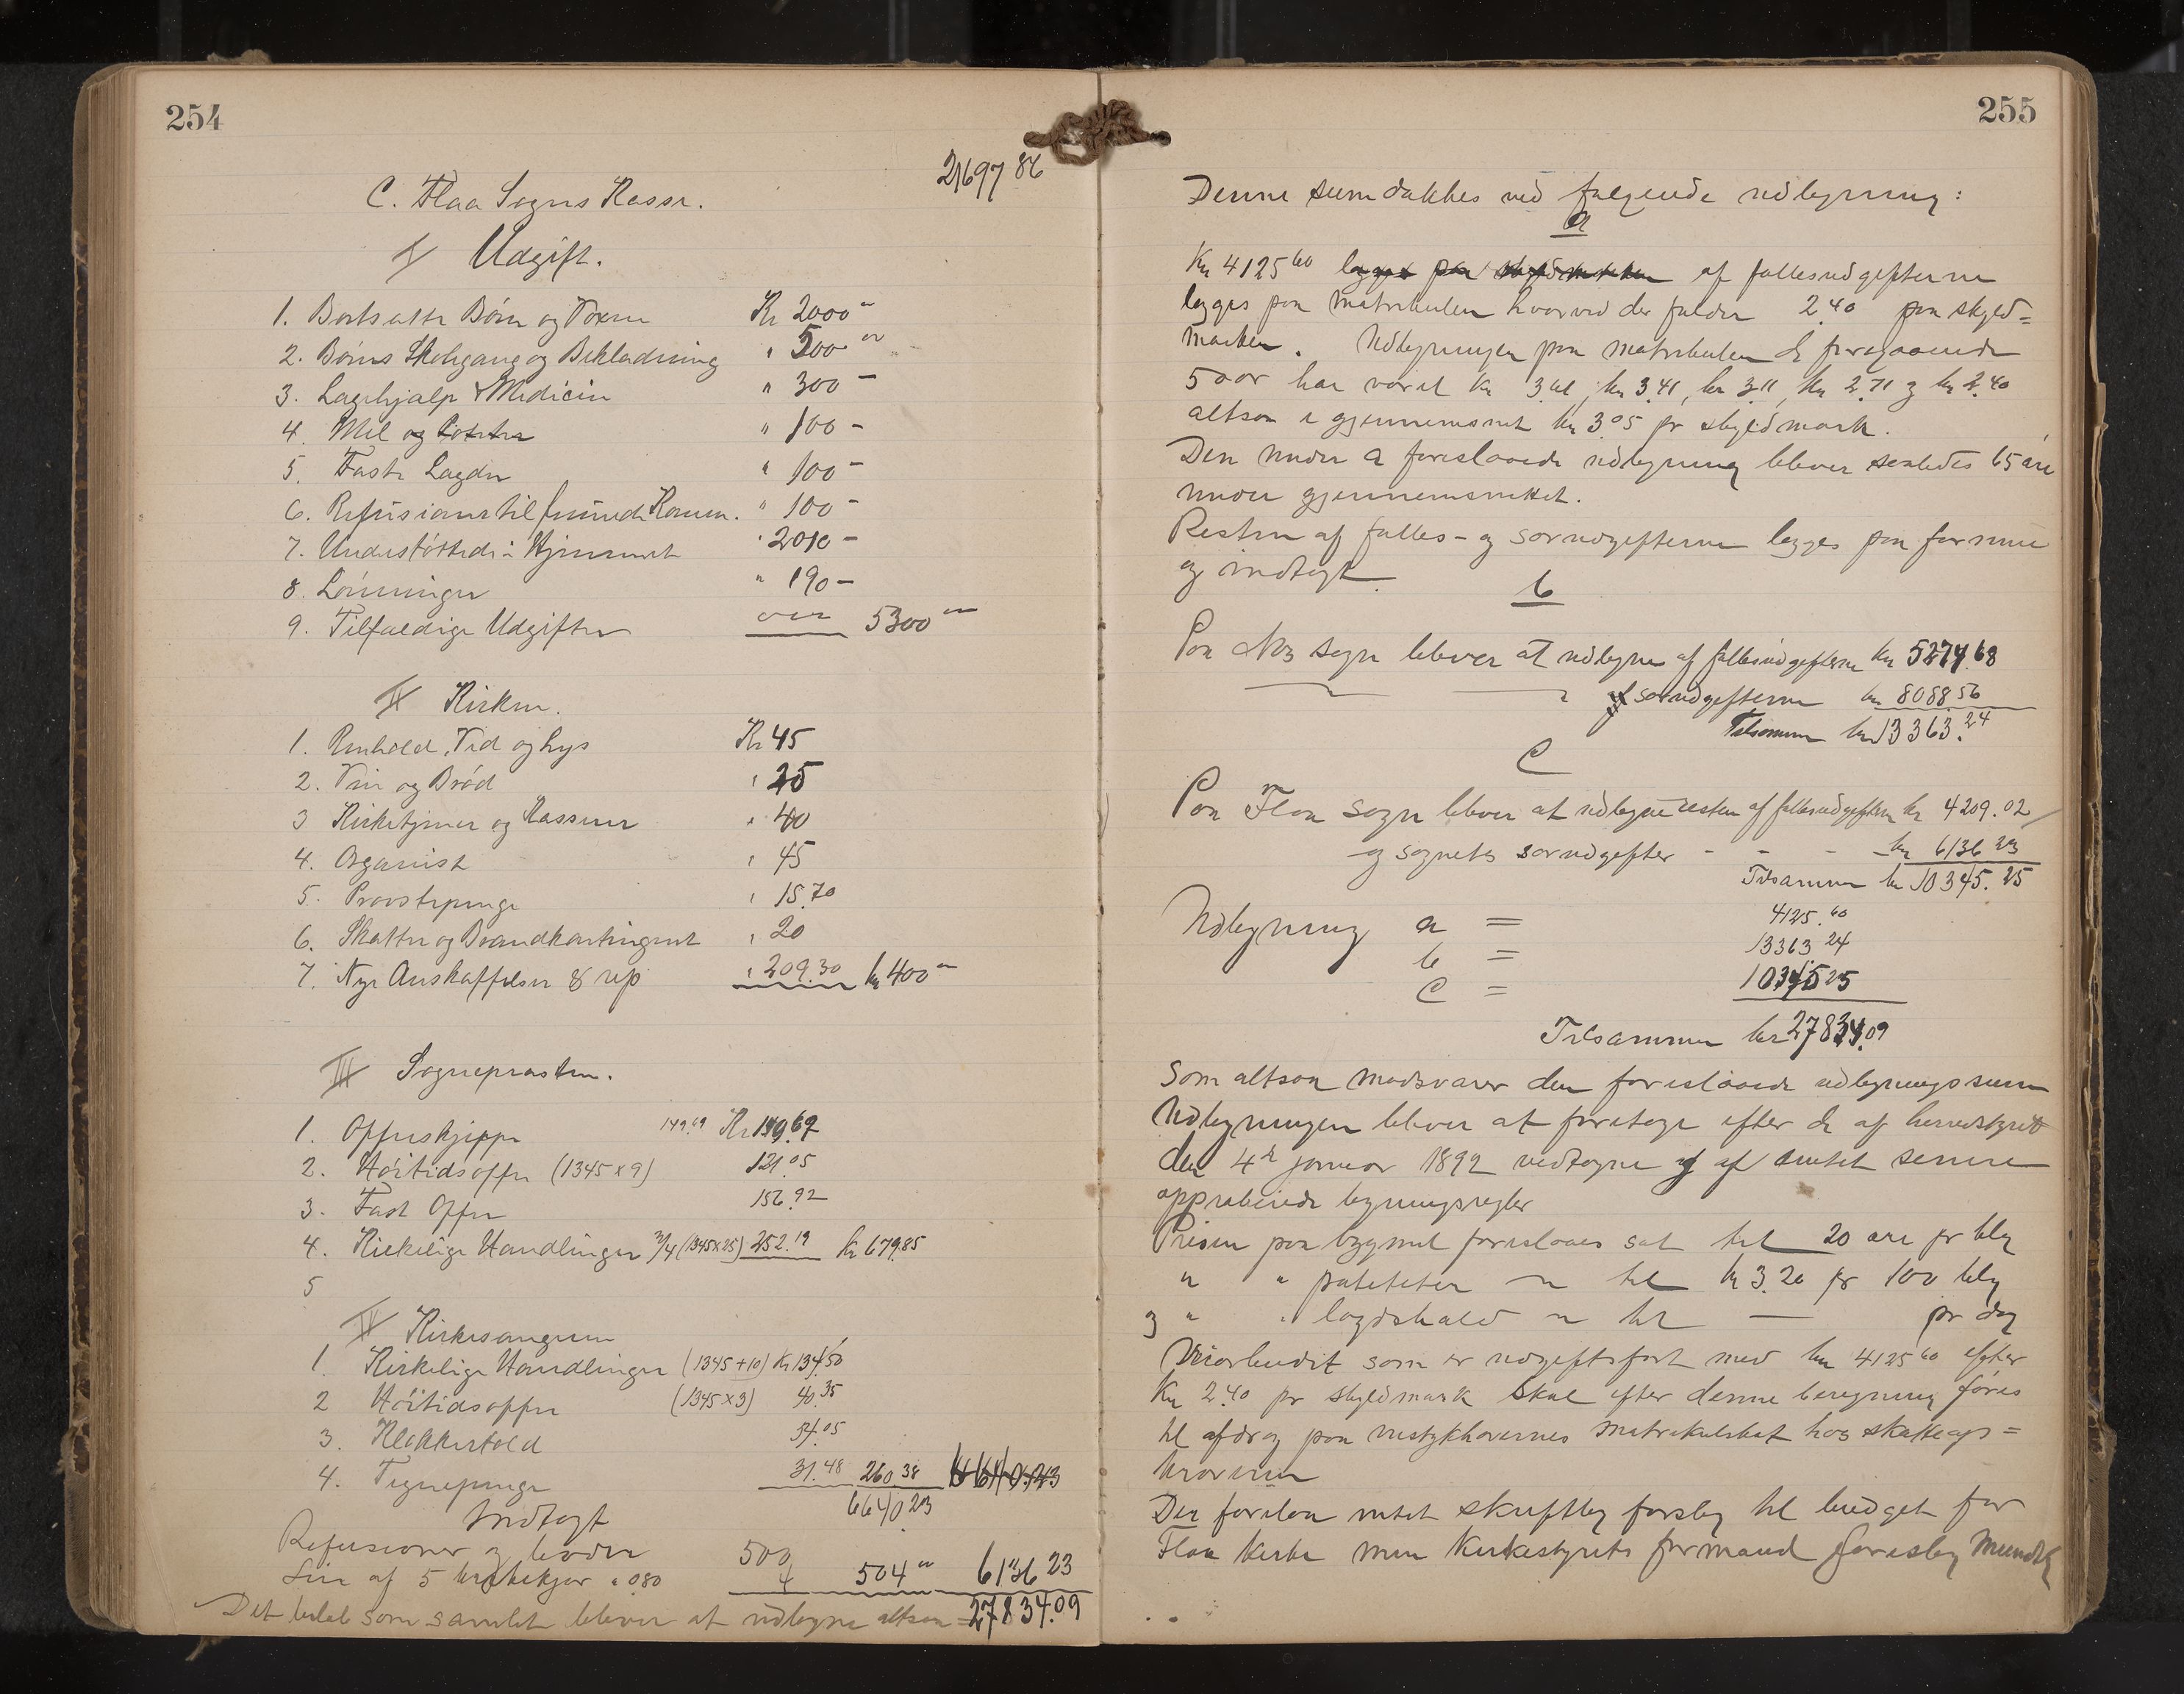 254
21697 86
C. Flaa Sogns Kasse.
I/ Udgift.
1. Bortsatte Børn og Voxne Kr 2000 "
2. Børns Skolegang og Bekladning " 500 "
3. Lægehjælp & Medicin " 300 -
4. Mel og Poteter " 100 -
5. Faste Lægder " 100 -
6. Refusioner til fremmede Komm. " 100 -
7. Understøttede i Hjemmet " 2010 -
8. Lønninger " 190 -
9. Tilfældige Udgifter 5300 "
II Kirken.
1. Renhold, Ved og Lys Kr 45
2. Vin og Brød " 25
3 Kirketjener og Kasserer " 40
4. Organist " 45
5. Provstepenge " 15.70
6. Skatter og Brandkontingent " 20
7. Nye Anskaffelser & rep " 209.30 kr 400 "
III Sognepræsten.
1. Offerskjæppe 149.69 Kr 149.69
2. Høitidsoffer (1345 x 9) 121.05
3. Fast Offer 156.92
4. Kirkelige Handlinger 3/4 (1345x25) 252.19 Kr 679.85
5
IV Kirkesangeren
1. Kirkelige Handlinger (1345 + 10) Kr 134.50
2 Høitidsoffer (1345 x 3) 40.35
3. Klokkertold 54.05
4. Tegnepenge 31.48 260.38
6640.23
Indtægt
Refusioner og bøder 500
Leie af 5 kirkekjør a 080 4 504 " 6136 23
Det beløb som samlet bliver at udligne altsaa = 27834.09
255
Denne sum dækkes ved følgende udligning:
a
Kr 4125 60 af fællesudgifterne
lægges paa matrikulen hvorved der falder 2.40 paa skyld=
marken. Udligningen paa matrikulen de foregaaende
5 aar har været kr 3.61, kr 3.41, kr 3.11, kr 2.71 og kr 2.40
altsaa i gjennemsnit kr 3.05 pr skyldmark.
Den under a foreslaaede udligning bliver saaledes 65 øre
under gjennemsnittet.
Resten af fælles- og særudgifterne lægges paa formue
og indtægt
b
Paa Nes sogn bliver at udligne af fællesudgifterne kr 5274.68
af særudgifterne kr 8088 56
Tilsammen kr 13363.24
C
Paa Flaa sogn bliver at udligne resten af fællesudgifterne kr 4209.02
og sognets særudgifter - - - - kr 6136 23
Tilsammen kr 10345.25
Udligning a = 4125.60
b = 13363.24
C = 10345 25
Tilsammen kr 27834.09
Som altsaa modsvarer den foreslaaede udligningssum
Udligningen bliver at foretage efter de af herredsstyret
den 4de januar 1892 vedtagne og af amtet senere
approberede ligningsregler
Prisen paa bygmel foreslaaes sat til 20 øre pr kg
" " poteteter " til kr 3.20 pr 100 kg
og " " lægdshold " til — pr dag
Veiarbeidet som er udgiftsført med kr 4125 60 efter
Kr 2.40 pr skyldmark skal efter denne beregning føres
til afdrag paa veistykhavernes matrikulskat hos skatteop=
kræveren
Der forelaa intet skriftlig forslag til budget for
Flaa kirke men kirkestyrets formand foreslog mundtlig